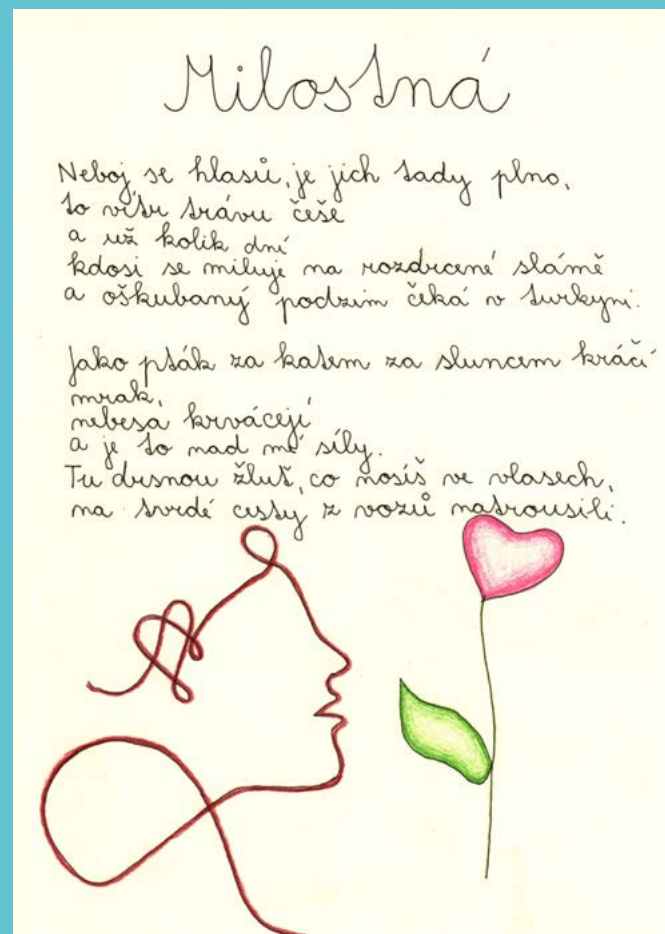 Milostná
Neboj se hlasů, je jich tady plno,
to vítr trávu češe
a už kolik dní
kdosi se miluje na rozdrcené slámě
a oškubaný podzim čeká v turkyni.
Jako pták za katem za sluncem kráčí
mrak,
nebesa krvácejí
a je to nad mé síly.
Tu drsnou žluť, co nosíš ve vlasech,
na tvrdé cesty z vozů natrousili.